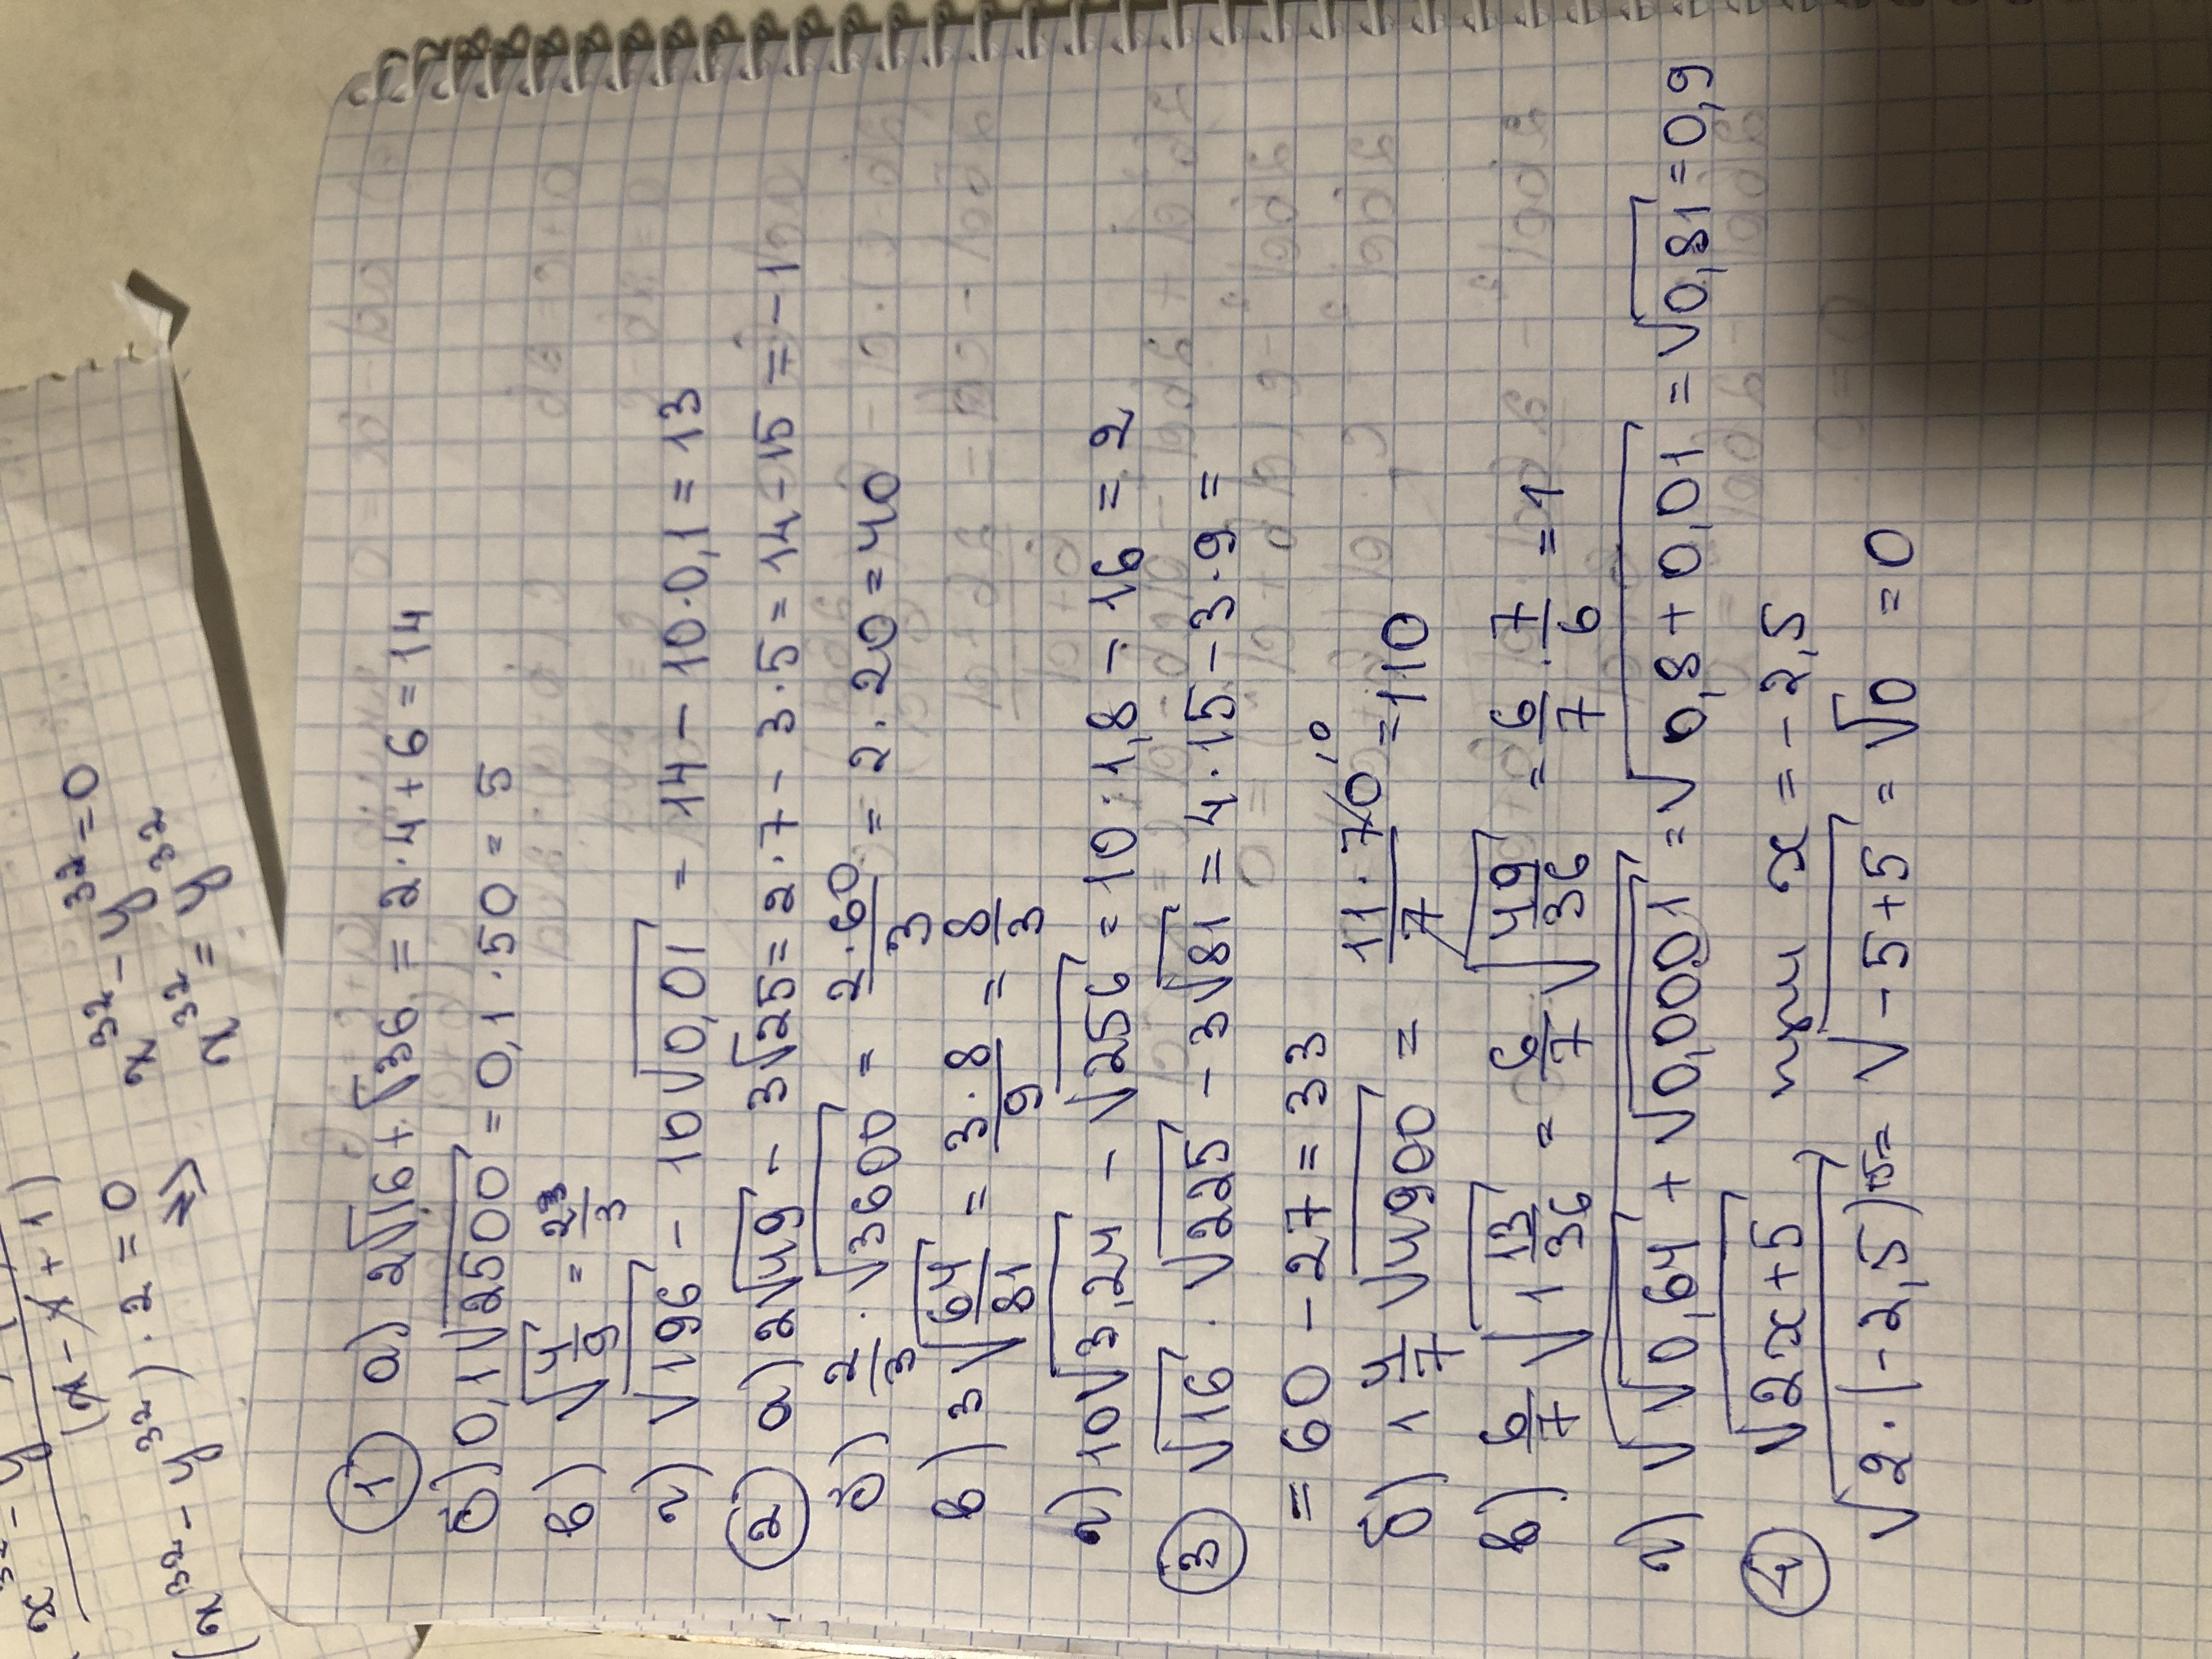 x³² - y³² = 0
(x - x + 1)
(x³² - y³²) · 2 = 0
=>
x³² = y³²
① а) 2√16 + √36 = 2·4+6=14
б) 0,1√2500 = 0,1·50=5
в) √4/9 = 2/3
г) √196 - 10√0,01 = 14 - 10·0,1 = 13
② а) 2√49 - 3√25 = 2·7 - 3·5 = 14-15 = -1
б) 2/3 · √3600 = 2·60/3 = 2·20=40
в) 3√64/81 = 3·8/9 = 8/3
г) 10√3,24 - √256 = 10·1,8 - 16 = 2
③ √16 · √225 - 3√81 = 4·15-3·9 =
= 60 - 27 = 33
б) 1 4/7 √4900 = 11·70/7 10 = 110
в) 6/7 √1 13/36 = 6/7 · √49/36 = 6/7 · 7/6 = 1
г) √√0,64 + √0,0001 = √0,8+0,01 = √0,81 = 0,9
④ √2x+5 при x = -2,5
√2·(-2,5)+5 = √-5+5 = √0 = 0